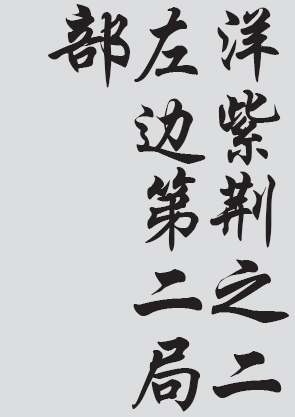 洋紫荆之二
左边第二局
部